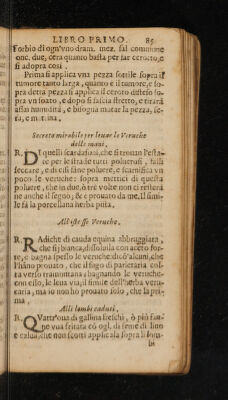 LIBRO PRIMO. 85
Torbio di ogn'vno dram. mez. sal commune
onc. due, cera quanto basta per far cerotto, e
si adopra così.
Prima si applica vna pezza sottile sopra il
tumore tanto larga, quanto e il tumore, e so-
pra detta pezza si applica il cerotto disteso so-
pra vn soato, e dopo si fascia stretto, e tirarà
assai humidità, e bisogna mutar la pezza, se-
ra, e matina.
Secreto mirabile per leuar le Veruche
delle mani.
R. DI quelli scardafoni, che si trouan l'esta-
te per le strade tutti poluerosi, falli
seccare, e di essi fane poluere, e scarnifica vn
poco le veruche: sopra mettici di questa
poluere, che in due, ò tre volte non ci resterà
ne anche il segno; & è prouato da me. Il simi-
le fà la porcellana herba pista.
All'istesse Veruche.
R. RAdiche di cauda equina abbruggiata,
che sij bianca, dissoluila con aceto for-
te, e bagna spesso le veruche: dicò alcuni, che
l'hāno prouato, che il sugo di parietaria col-
ta verso tramontana, bagnando le veruche
con esso, le leua via, il simile dell'herba veru-
caria, ma io non hò prouato solo, che la pri-
ma.
Alli lombi caduti.
R. QVattr'oua di gallina freschi, ò più fan-
ne vna fritata cō ogl. di seme di lino
e calda, che non scotti applicala sopra li lom-
bi